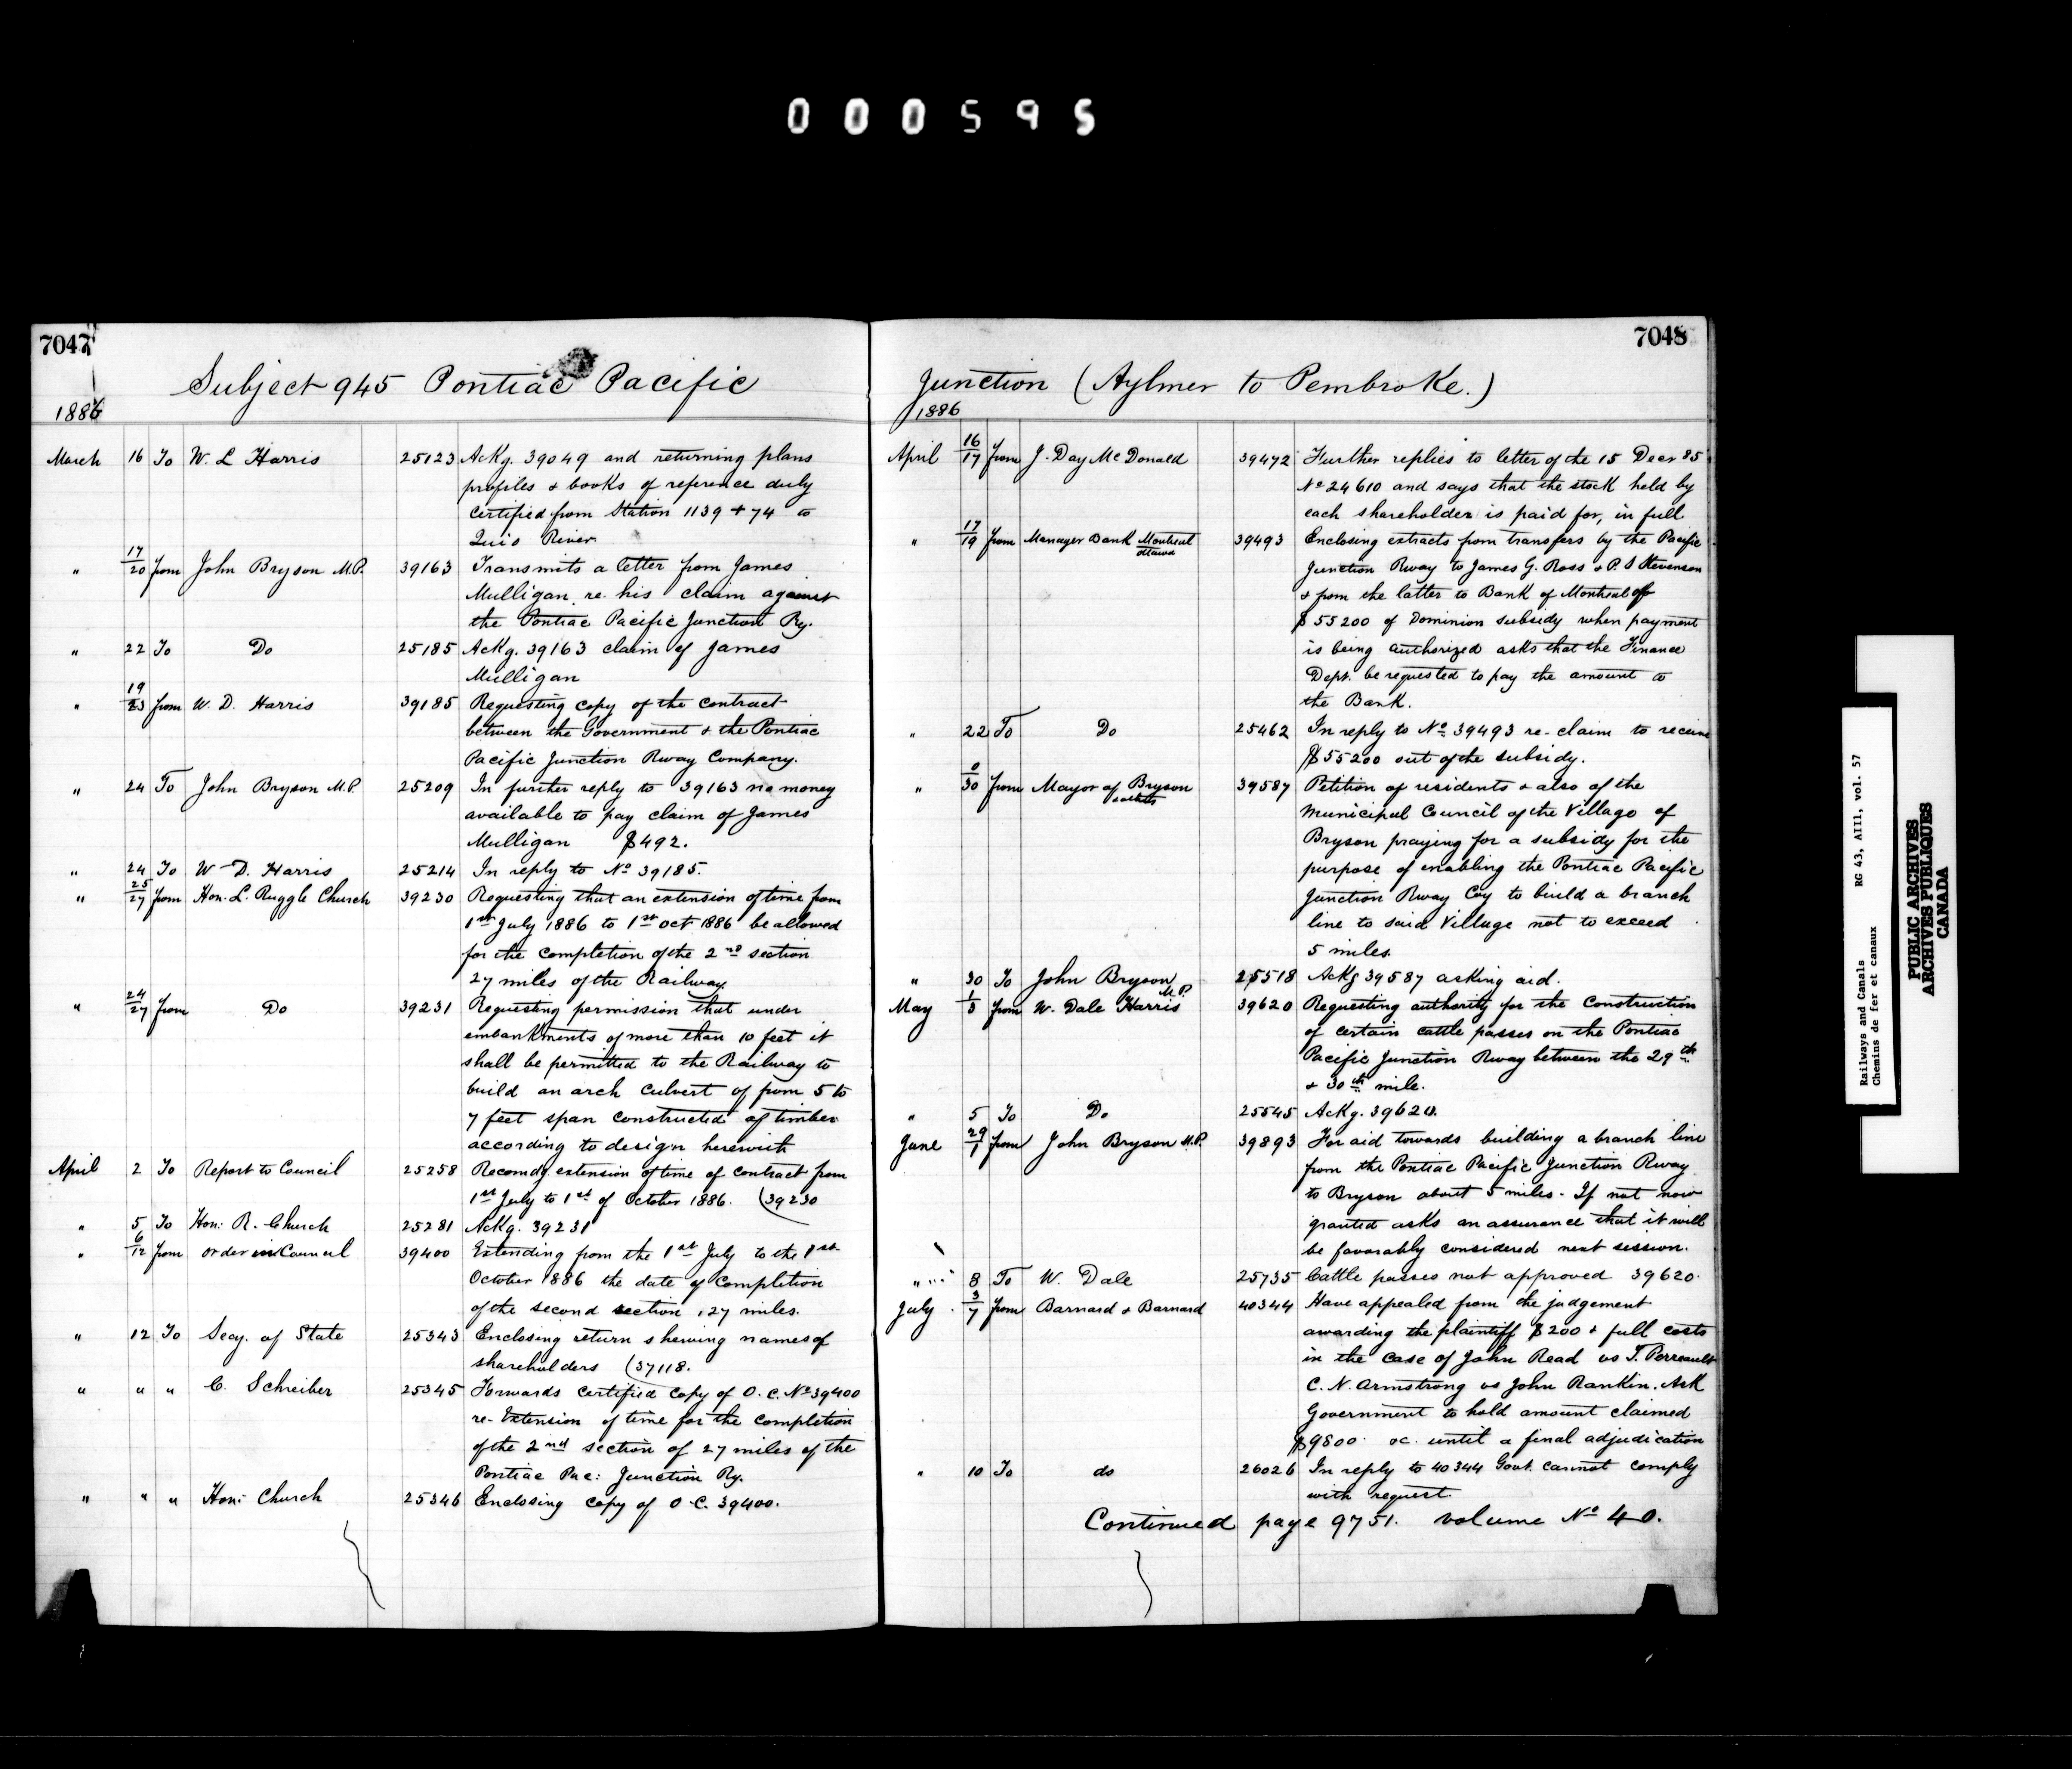 000595
7047
Subject 945 Pontiac Pacific
1886
March 16 To W. L Harris 25123 Ackg. 39049 and returning plans
profiles & books of reference duly
certified from Station 1139 + 74 to
Quio River
" 17/20 from John Bryson M.P. 39163 Transmits a letter from James
Mulligan re. his claim against
the Pontiac Pacific Junction Ry.
" 22 To Do 25185 Ackg. 39163 claim of James
Mulligan
" 19/23 from W. D. Harris 39185 Requesting copy of the contract
between the Government & the Pontiac
Pacific Junction Rway Company.
" 24 To John Bryson M.P. 25209 In further reply to 39163 no money
available to pay claim of James
Mulligan $492.
" 24 To W. D. Harris 25214 In reply to No 39185.
" 25/27 from Hon. L. Ruggle Church 39230 Requesting that an extension of time from
1st July 1886 to 1st Oct 1886 be allowed
for the completion of the 2nd section
27 miles of the Railway.
" 24/27 from Do 39231 Requesting permission that under
embankments of more than 10 feet it
shall be permitted to the Railway to
build an arch culvert of from 5 to
7 feet span constructed of timber
according to design herewith
April 2 To Report to Council 25258 Recomdg extension of time of contract from
1st July to 1st of October 1886. (39230
" 5 To Hon: R. Church 25281 Ackg. 39231
" 6/12 from Order in Council 39400 Extending from the 1st July to the 1st
October 1886 the date of completion
of the second section, 27 miles.
" 12 To Secy. of State 25343 Enclosing return shewing names of
shareholders (37118.
" " " C. Schreiber 25345 Forwards certified copy of O. C. No 39400
re- Extension of time for the completion
of the 2nd section of 27 miles of the
Pontiac Pac: Junction Ry.
" " " Hon: Church 25346 Enclosing copy of O.C. 39400.
7048
Junction (Aylmer to Pembroke.)
1886
April 16/17 from J. Day McDonald 39472 Further replies to letter of the 15 Decr 85
No 24610 and says that the stock held by
each shareholder is paid for, in full
" 17/19 from Manager Bank Montreal Ottawa 39493 Enclosing extracts from transfers by the Pacific
Junction Rway to James G. Ross & P. S Stevenson
& from the latter to Bank of Montreal of
$55200 of Dominion subsidy when payment
is being authorized asks that the Finance
Dept. be requested to pay the amount to
the Bank.
" 22 To Do 25462 In reply to No 39493 re- claim to receive
$55200 out of the subsidy.
" 0/30 from Mayor of Bryson 39587 Petition of residents & also of the
Municipal Council of the Village of
Bryson praying for a subsidy for the
purpose of enabling the Pontiac Pacific
Junction Rway Coy to build a branch
line to said Village not to exceed
5 miles.
" 30 To John Bryson M.P. 25518 Ackg 39587 asking aid.
May 1/5 from W. Dale Harris 39620 Requesting authority for the construction
of certain cattle passes on the Pontiac
Pacific Junction Rway between the 29th
& 30th mile.
" 5 To Do 25545 Ackg. 39620.
June 29/1 from John Bryson M.P. 39893 For aid towards building a branch line
from the Pontiac Pacific Junction Rway
to Bryson about 5 miles. If not now
granted asks an assurance that it will
be favorably considered next session.
" 8 To W. Dale 25735 Cattle passes not approved 39620.
July 3/7 from Barnard & Barnard 40344 Have appealed from the judgement
awarding the plaintiff $200 & full costs
in the case of John Read vs T. Perreault
C. N. Armstrong vs John Rankin. Ask
Government to hold amount claimed
$9800. until a final adjudication
" 10 To do 26026 In reply to 40344 Govt. cannot comply
with request.
Continued page 9751. volume No 40.
Railways and Canals RG 43, AIII, vol. 57
Chemins de fer et canaux
PUBLIC ARCHIVES
ARCHIVES PUBLIQUES
CANADA